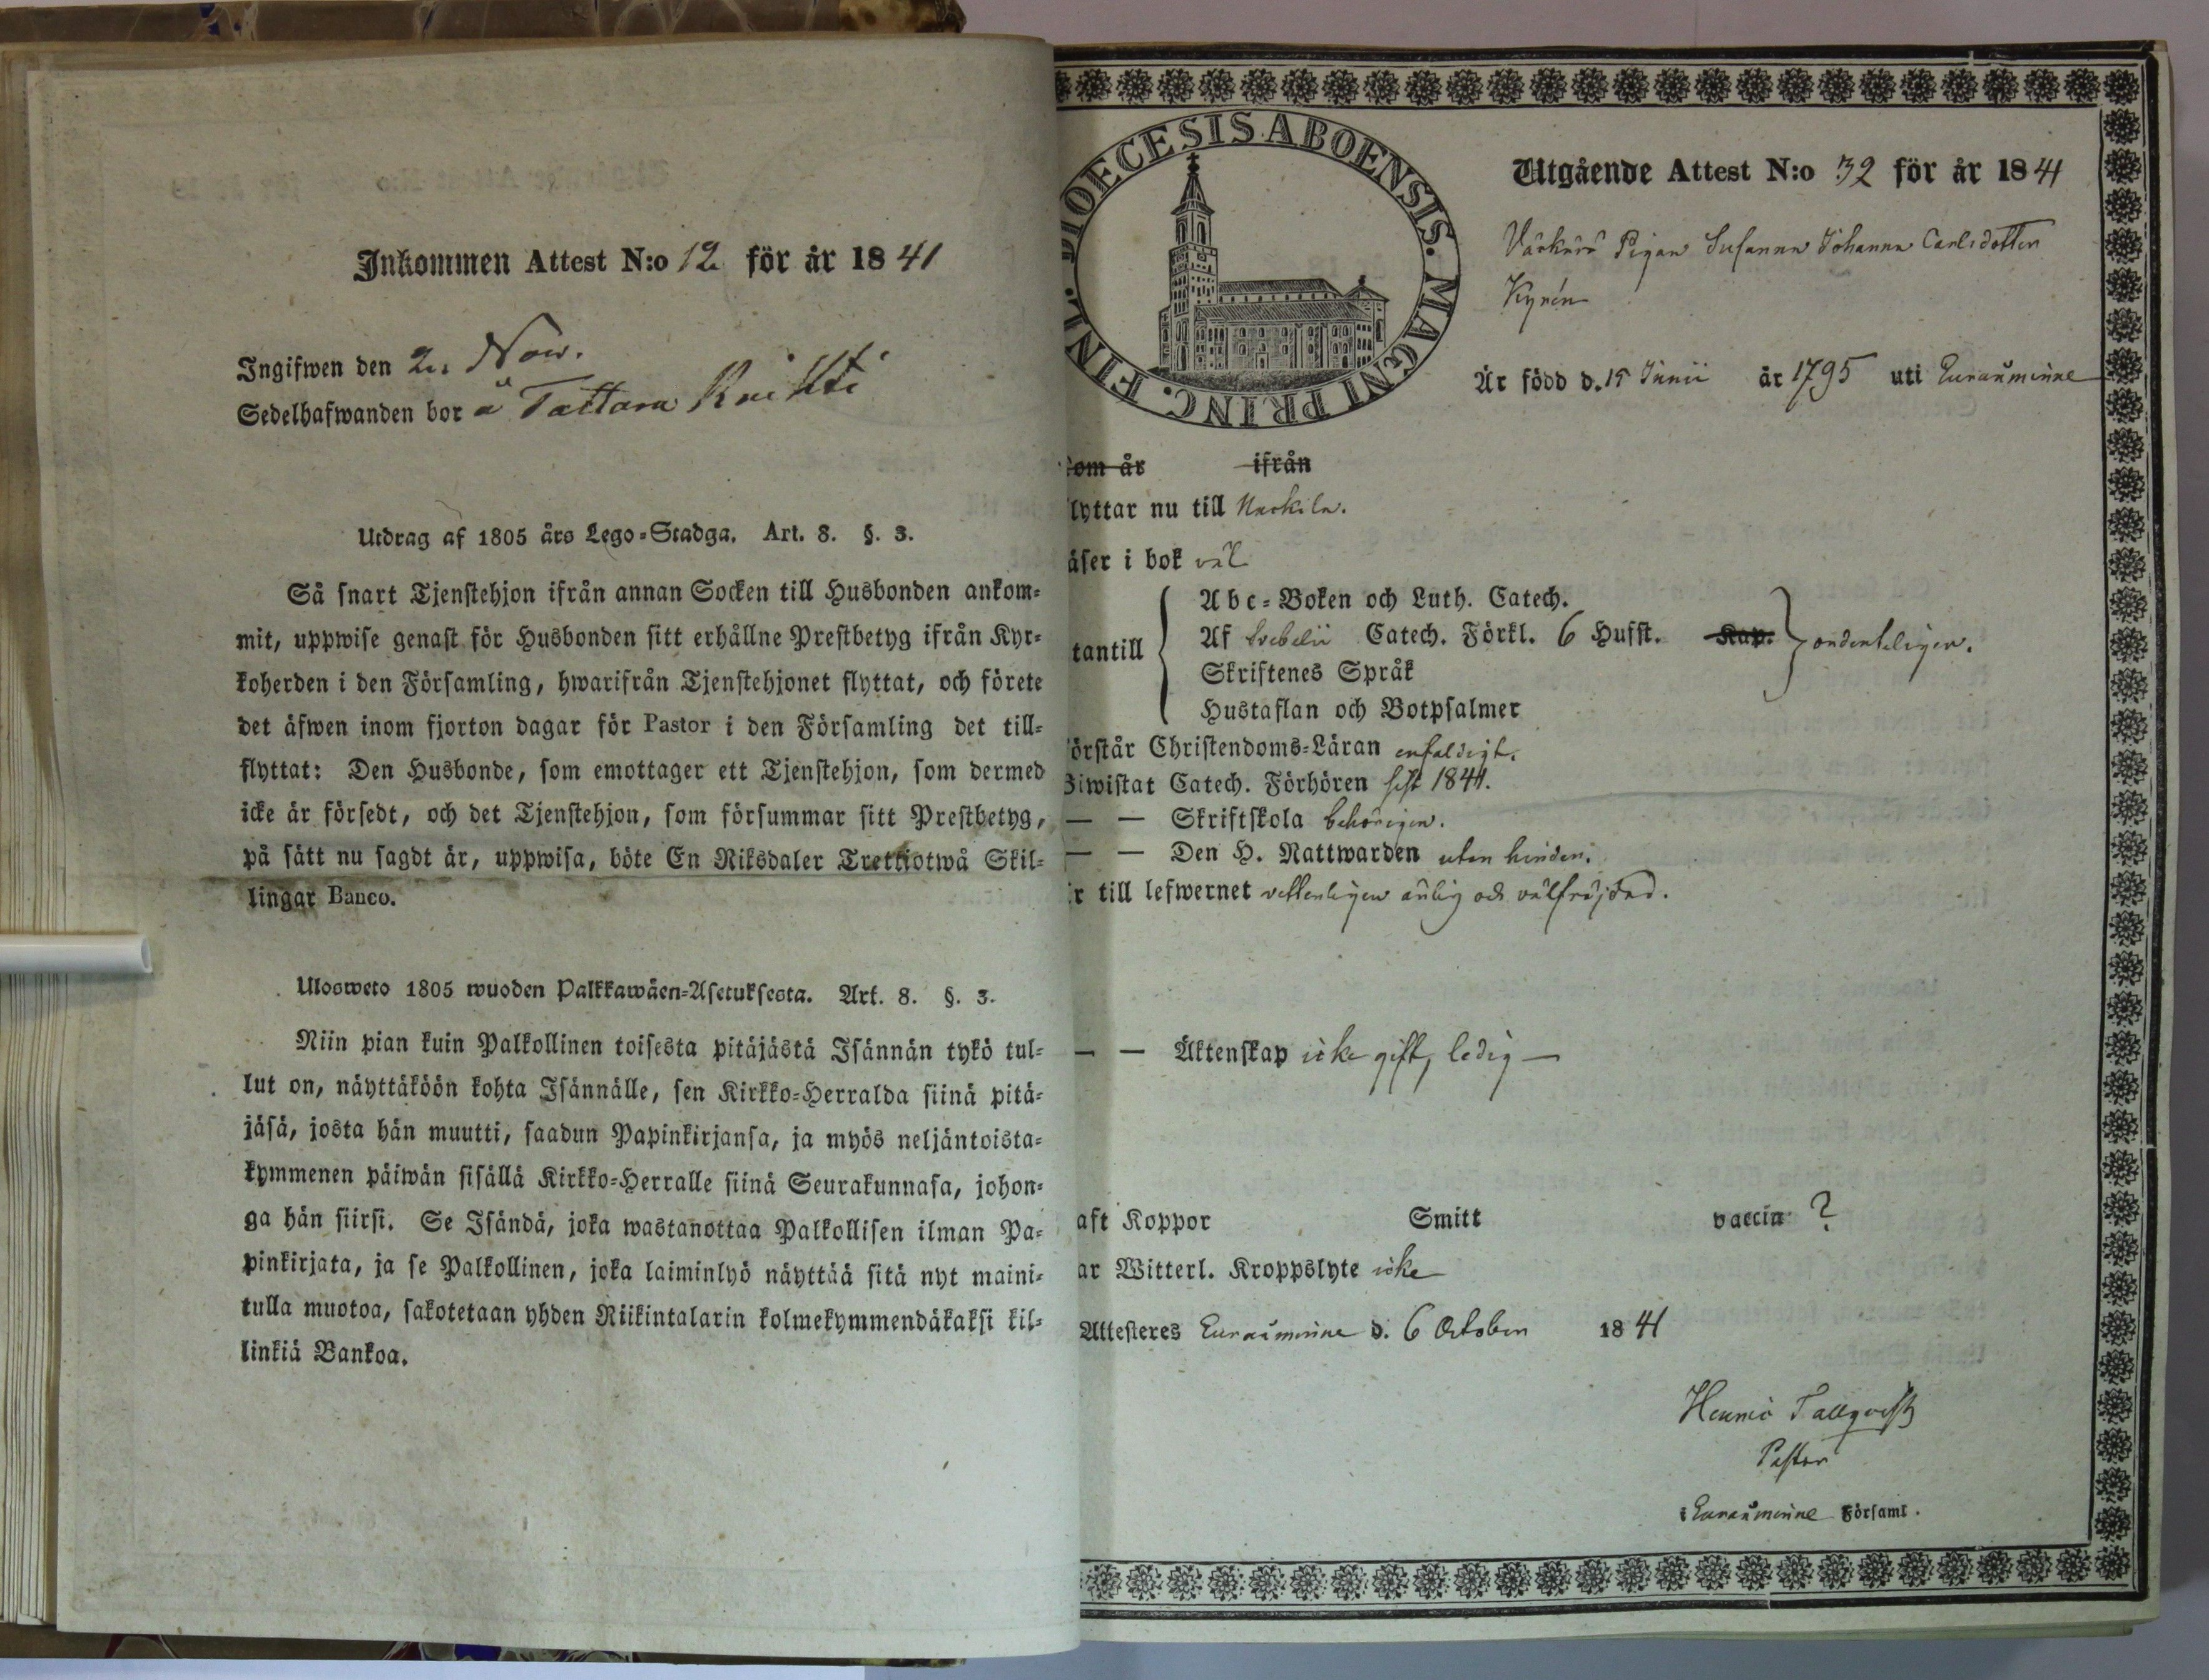 Inkommen Attest N:o 12 för år 1841
Ingifwen den 2. Nov.
Sedelhafwanden bor å Tattara Knihti
Utdrag af 1805 års Lego-Stadga. Art. 8. §. 3.
Så snart Tjenstehjon ifrån annan Socken till Husbonden ankom-
mit, uppwise genast för Husbonden sitt erhållne Prestbetyg ifrån Kyr-
koherden i den Församling, hwarifrån Tjenstehjonet flyttat, och förete
det äfwen inom fjorton dagar för Pastor i den Församling det till-
flyttat: Den Husbonde, som emottager ett Tjenstehjon, som dermed
icke är försedt, och det Tjenstehjon, som försummar sitt Prestbetyg,
på sätt nu sagdt är, uppwisa, böte En Riksdaler Trettiotwå Skil-
lingar Banco.
Ulosweto 1805 wuoden Palkkawäen-Asetuksesta. Art. 8. §. 3.
Niin pian kuin Palkollinen toisesta pitäjästä Isännän tykö tul-
lut on, näyttäköön kohta Isännälle, sen Kirkko-Herralda siinä pitä-
jäsä, josta hän muutti, saadun Papinkirjansa, ja myös neljäntoista-
kymmenen päiwän sisällä Kirkko-Herralle siinä Seurakunnasa, johon-
ga hän siirsi. Se Isändä, joka wastanottaa Palkollisen ilman Pa-
pinkirjata, ja se Palkollinen, joka laiminlyö näyttää sitä nyt maini-
tulla muotoa, sakotetaan yhden Riikintalarin kolmekymmendäkaksi kil-
linkiä Bankoa.
DIOECESIS ABOENSIS. MAGNI PRINC. FINL.
Utgående Attest N:o 32 för år 1841
Pigan Susanna Johanna Carlsdotter
Kyrén
Är född d. 15 Junii år 1795 uti Euraåminne
om år ifrån
lyttar nu till Nackila.
äser i bok väl
tantill
Abc-Boken och Luth. Catech.
Af Svebelii Catech. Förkl. 6 Hufst. Kap.
Skriftenes Språk
Hustaflan och Botpsalmer
ordenteligen.
örstår Christendoms-Läran enfaldigt.
Biwistat Catech. Förhören sist 1841.
— — Skriftskola behörigen.
— — Den H. Nattwarden utan hinder.
r till lefwernet vetterligen ärlig och välfräjdad.
— — Äktenskap icke gift, ledig —
aft Koppor Smitt vaccin ?
ar Witterl. Kroppslyte icke
Attesteres Euraåminne d. 6 October 1841
Henric Tallqvist
Pastor
i Euraåminne Församl.